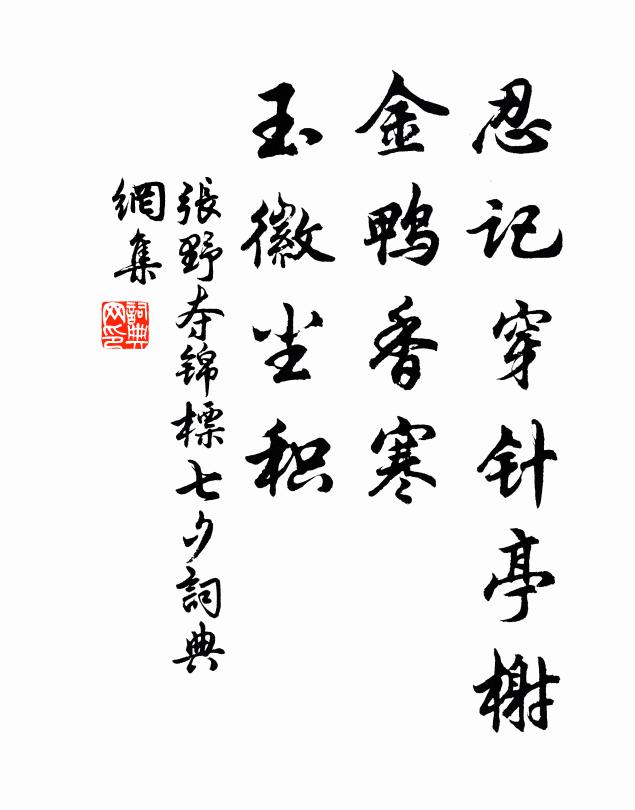 忍记穿针亭榭
金鸭香寒
玉徽尘积
張野夺锦標七夕詞典
網集
詞典
网印